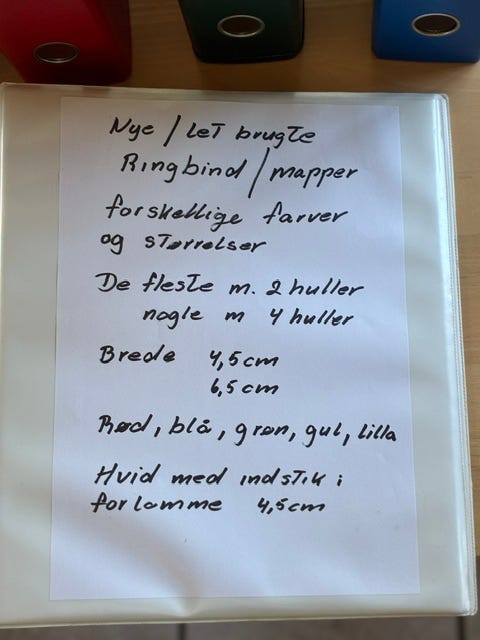 Nye / let brugte
Ringbind / mapper
forskellige farver
og størrelser
De fleste m. 2 huller
nogle m 4 huller
Brede 4,5 cm
6,5 cm
Rød, blå, grøn, gul, lilla
Hvid med indstik i
forlomme 4,5 cm